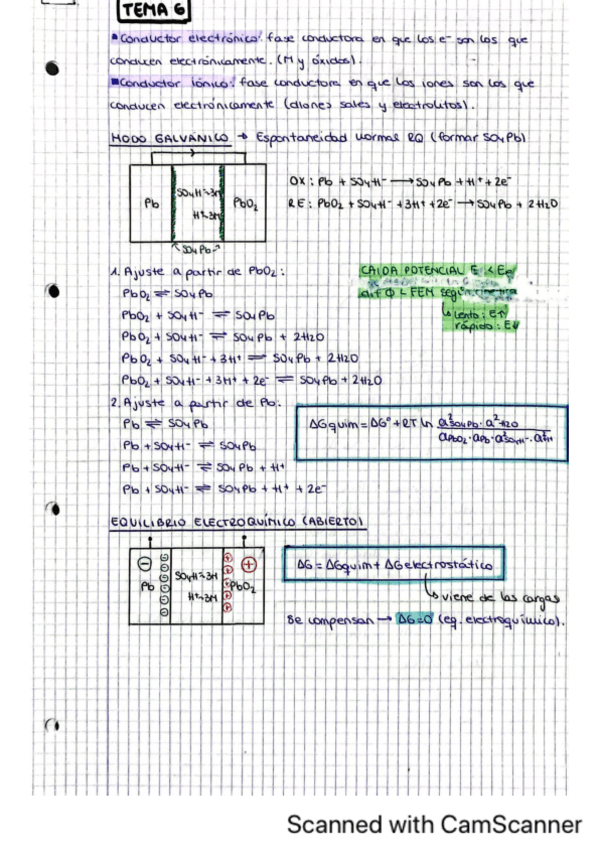 TEMA 6
• Conductor electrónico: fase conductora en que los e⁻ son los que
conducen electrónicamente. (M y óxidos).
■ Conductor iónico: fase conductora en que los iones son los que
conducen electrónicamente (dlones sales y electrolitos).
MODO GALVÁNICO → Espontaneidad normal RQ (formar SO₄Pb)
Pb
SO₄H⁻ 3M
H⁺ 3M
PbO₂
SO₄Pb
OX: Pb + SO₄H⁻ → SO₄Pb + H⁺ + 2e⁻
RE: PbO₂ + SO₄H⁻ + 3H⁺ + 2e⁻ → SO₄Pb + 2H₂O
1. Ajuste a partir de PbO₂:
PbO₂ ⇌ SO₄Pb
PbO₂ + SO₄H⁻ ⇌ SO₄Pb
PbO₂ + SO₄H⁻ ⇌ SO₄Pb + 2H₂O
PbO₂ + SO₄H⁻ + 3H⁺ ⇌ SO₄Pb + 2H₂O
PbO₂ + SO₄H⁻ + 3H⁺ + 2e⁻ ⇌ SO₄Pb + 2H₂O
CAIDA POTENCIAL
dif Φ < FEM según cinética
↳ Lento: E↑
rápido: E↓
2. Ajuste a partir de Pb:
Pb ⇌ SO₄Pb
Pb + SO₄H⁻ ⇌ SO₄Pb
Pb + SO₄H⁻ ⇌ SO₄Pb + H⁺
Pb + SO₄H⁻ ⇌ SO₄Pb + H⁺ + 2e⁻
ΔGquim = ΔG° + RT ln a²SO₄Pb · a²H₂O
aPbO₂ · aPb · a²SO₄H⁻ · a²H
EQUILIBRIO ELECTROQUÍMICO (ABIERTO)
Pb
SO₄H⁻ 3M
H⁺ 3M
PbO₂
ΔG = ΔGquim + ΔGelectrostático
↳ viene de las cargas
Se compensan → ΔG=0 (eq. electroquímico).
Scanned with CamScanner